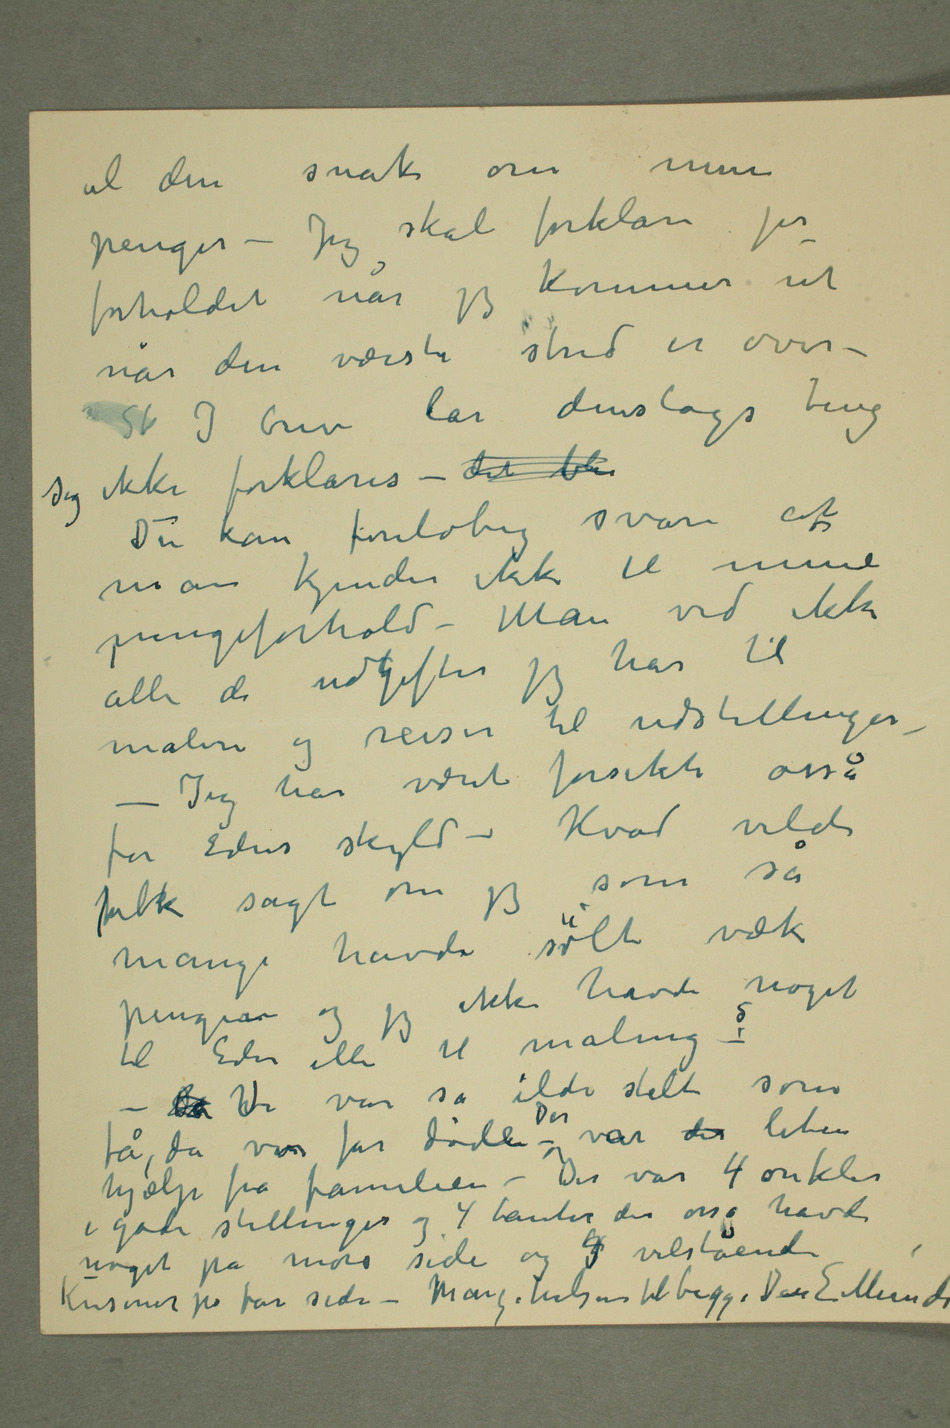 al den snak om mine
penger – Jeg skal forklare jer
forholdet når jeg kommer ut
når den værste strid er over –
I brev lar denslags ting
sig ikke forklares – det blir
Du kan foreløbig svare at
man kjender ikke til mine
pengeforhold – Man ved ikke
alle de udgifter jeg har til
maleri og reiser til udstillinger –
– Jeg har været forsikti også
for Eders skyld – Hvad vilde
folk sagt om jeg som så
mange havde sølt væk
pengene og jeg ikke havde noget
til Eder eller til maling –
– Vi var så ilde stelt som
få, da vor far døde – Der var der liten
hjælp fra familien – Der var 4 onkler
i gode stillinger og 4 tanter der osså havde
noget på mors side og velstående
Kusiner på fars side – Mange hilsener til begge Din E. Munch